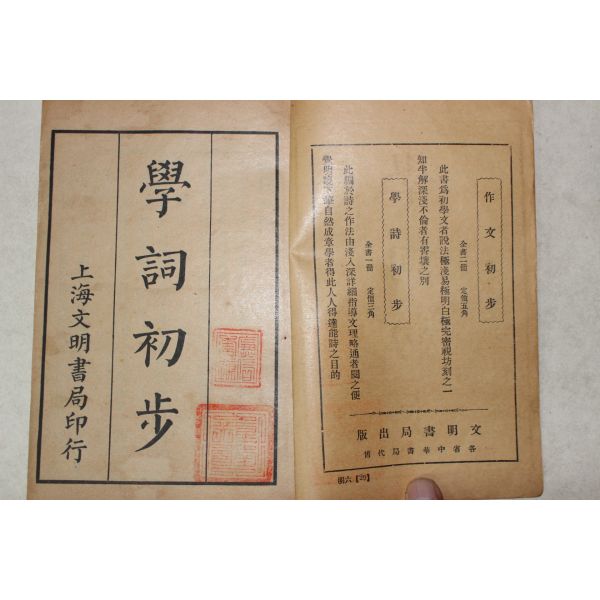 作文初步
全書二冊　定價五角
此書爲初學文者說法極淺易極明白極完密視坊刻之一
知半解深淺不倫者有霄壤之別
學詩初步
全書一冊　定價三角
此編於詩之作法由淺入深詳細指導文理略通者閱之便
覺明
自然成章學者得此人人得達能詩之目的
文明書局出版
各省中華書局代售
明六【29】
學詞初步
上海文明書局印行